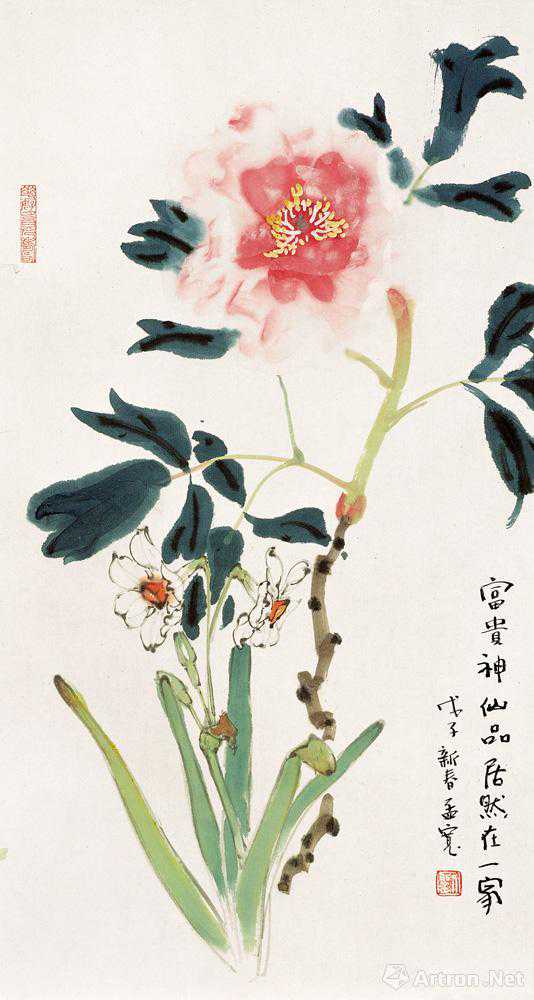 富貴神仙品居然在一家
戊子新春孟寬
Artron.Net